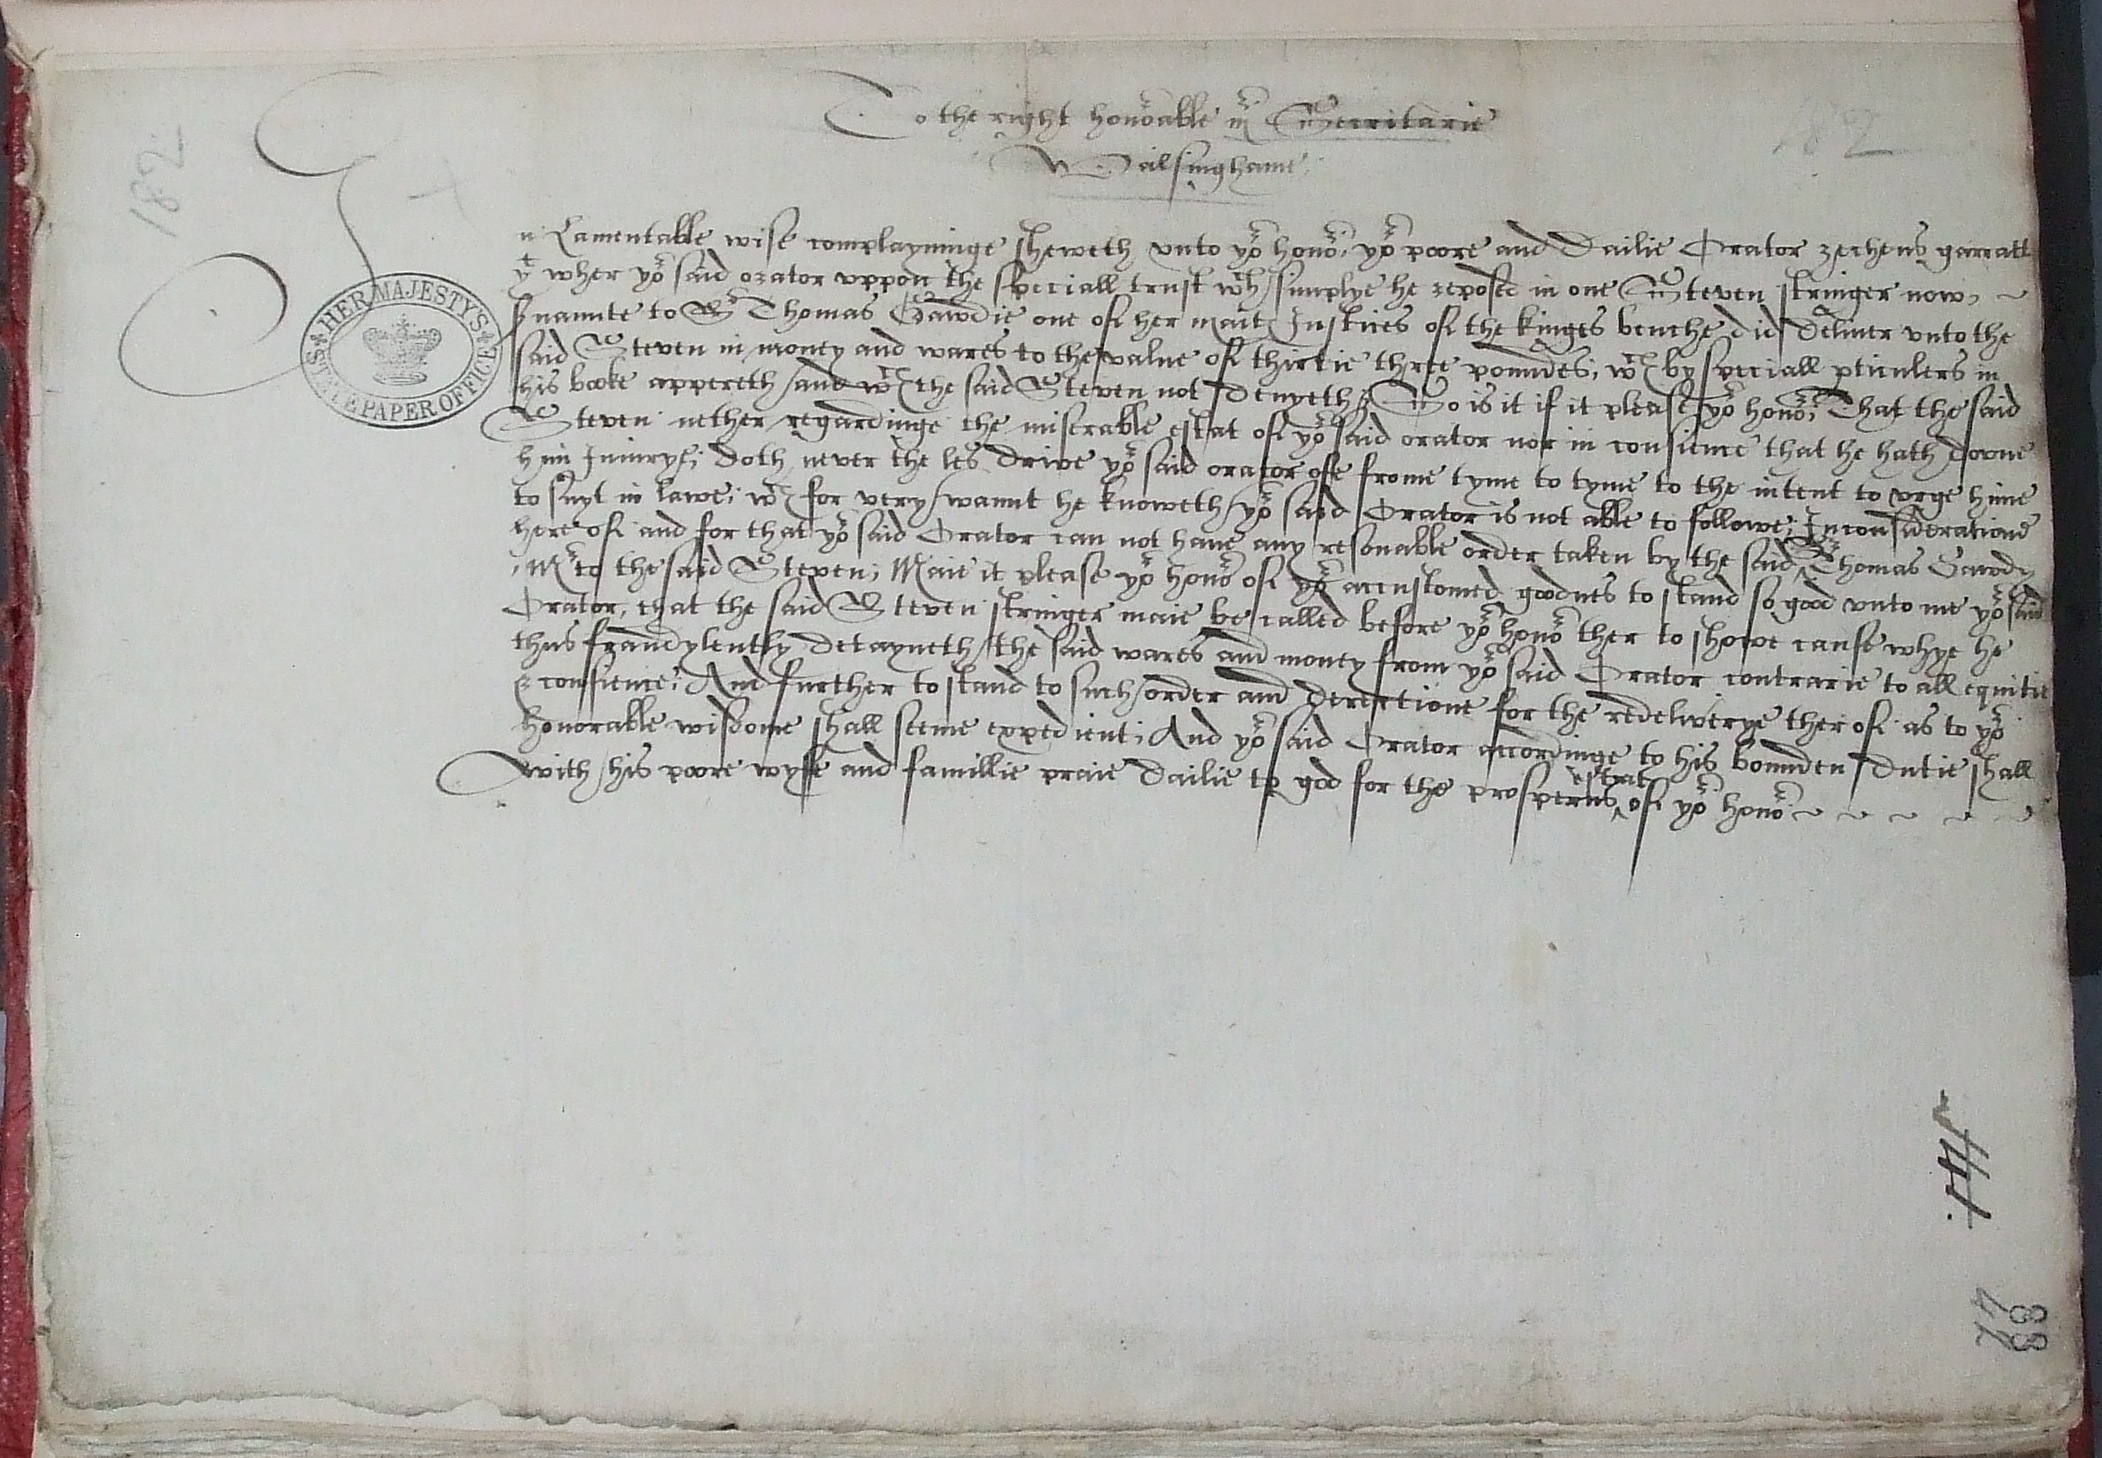 To the right honorable mr Secritarie
Walsinghame
182
182
In Lamentable wise complayninge sheweth vnto yor honor, yor poore and Dailie Orator garratt
yt wher yor said orator vppon the speciall trust wch simplye he reposed in one Steven stringer now
srvaunte to Sr Thomas Gawdie one of her maits Justices of the kinges benche did deliuer vnto the
said Steven in money and wares to the value of thirtie three poundes, wch by speciall pticulers in
his booke appereth and wch the said Steven not denyeth; So is it if it please yor honor; That the said
Steven nether regardinge the miserable estat of yor said orator nor in consience that he hath downe
him Iniurye; doth never the les drive yor said orator offe frome tyme to tyme to the intent to vrge hime
to suyt in lawe; wch for very wannt he knoweth yor said Orator is not able to followe; In consideratione
here of and for that yor said Orator can not haue any resonable order taken by the said Sr Thomas Gawdy
Mr to the said Steven; Maie it please yor honor of yor accustomed goodnes to stand so good vnto me yor said
Orator, that the said Steven stringer maie be called before yor honor ther to showe cause whye he
thus fraudylently detayneth the said wares and money from yor said Orator contrarie to all equitie
& consience; And further to stand to such order and derectione for the redeliverye ther of as to yor
honorable wisdome shall seeme expedient; And yor said Orator accordinge to his bounden dutie shall
with his poore wyffe and famillie praie dailie to god for the prosperus estat of yor honor
HER MAJESTY'S STATE PAPER OFFICE
88